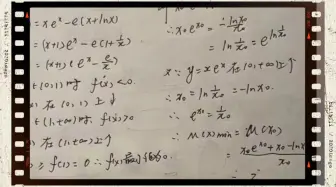 = xe^x - e(x+lnx)
= (x+1)e^x - e(1+1/x)
= (x+1)(e^x - e/x)
(0,1)时 f'(x)<0.
在(0,1)上↓
(1,+∞)时 f'(x)>0
在(1,+∞)上↑
≥ f(1)=0 ∴ f(x)
∴ x₀e^{x₀} =
= ln 1/x₀ = e^{ln 1/x₀}
又∵ y=xe^x 在(0,+∞)上↑
∴ x₀ = ln 1/x₀ = -lnx₀.
∴ e^{x₀} = 1/x₀
∴ (x)min = (x₀)
= x₀e^{x₀} + x₀ - lnx